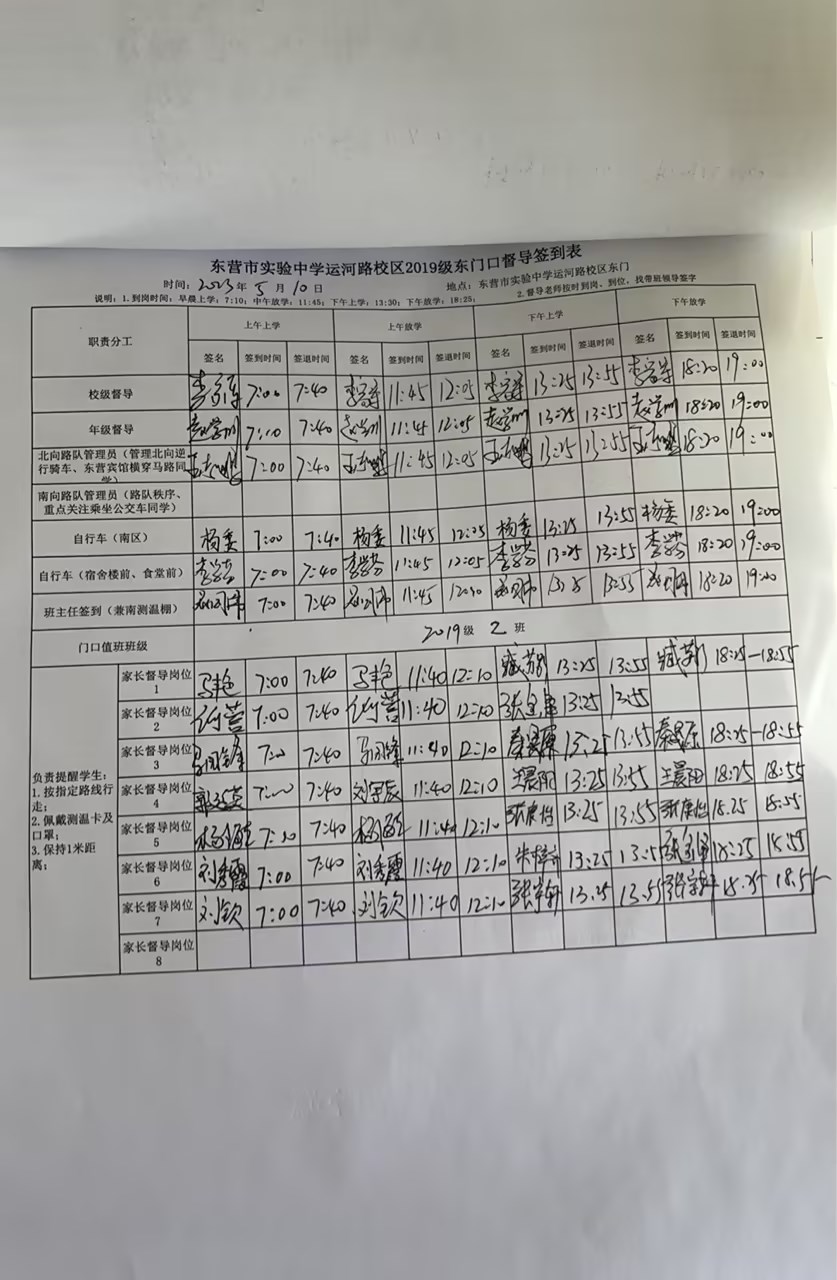 东营市实验中学运河路校区2019级东门口督导签到表
时间：2023年5月10日 地点：东营市实验中学运河路校区东门
说明：1.到岗时间：早晨上学：7:10；中午放学：11:45；下午上学：13:30；下午放学：18:25； 2.督导老师按时到岗、到位，找带班领导签字
职责分工 上午上学 上午放学 下午上学 下午放学
签名 签到时间 签退时间 签名 签到时间 签退时间 签名 签到时间 签退时间 签名 签到时间 签退时间
校级督导 7:00 7:40 11:45 12:05 13:25 13:55 18:20 19:00
年级督导 7:10 7:40 11:45 12:05 13:25 13:55 18:20 19:00
北向路队管理员（管理北向逆
行骑车、东营宾馆横穿马路同
学） 7:00 7:40 11:45 12:05 13:25 13:55 18:20 19:00
南向路队管理员（路队秩序、
重点关注乘坐公交车同学）
自行车（南区） 杨委 7:00 7:40 杨委 11:45 12:05 杨委 13:25 13:55 杨委 18:20 19:00
自行车（宿舍楼前、食堂前） 7:00 7:40 11:45 12:05 13:25 13:55 18:20 19:00
班主任签到（兼南测温棚） 7:00 7:40 11:45 13:55 18:20 19:00
门口值班班级 2019级 2 班
负责提醒学生：
1.按指定路线行
走；
2.佩戴测温卡及
口罩；
3.保持1米距
离；
家长督导岗位
1 马艳 7:00 7:40 马艳 11:40 12:10 13:25 13:55 18:25-18:55
家长督导岗位
2 7:00 7:40 11:40 12:10 13:25 13:55
家长督导岗位
3 7:00 7:40 11:40 12:10 13:25 13:55 18:25-18:55
家长督导岗位
4 7:00 7:40 刘宇辰 11:40 12:10 王晨阳 13:25 13:55 王晨阳 18:25 18:55
家长督导岗位
5 7:40 11:40 12:10 13:25 13:55 18:25 18:55
家长督导岗位
6 刘秀霞 7:00 7:40 刘秀霞 11:40 12:10 13:25 13:55 18:25 18:55
家长督导岗位
7 刘钦 7:00 7:40 刘钦 11:40 12:10 张宇轩 13:25 13:55 张宇轩 18:25 18:55
家长督导岗位
8